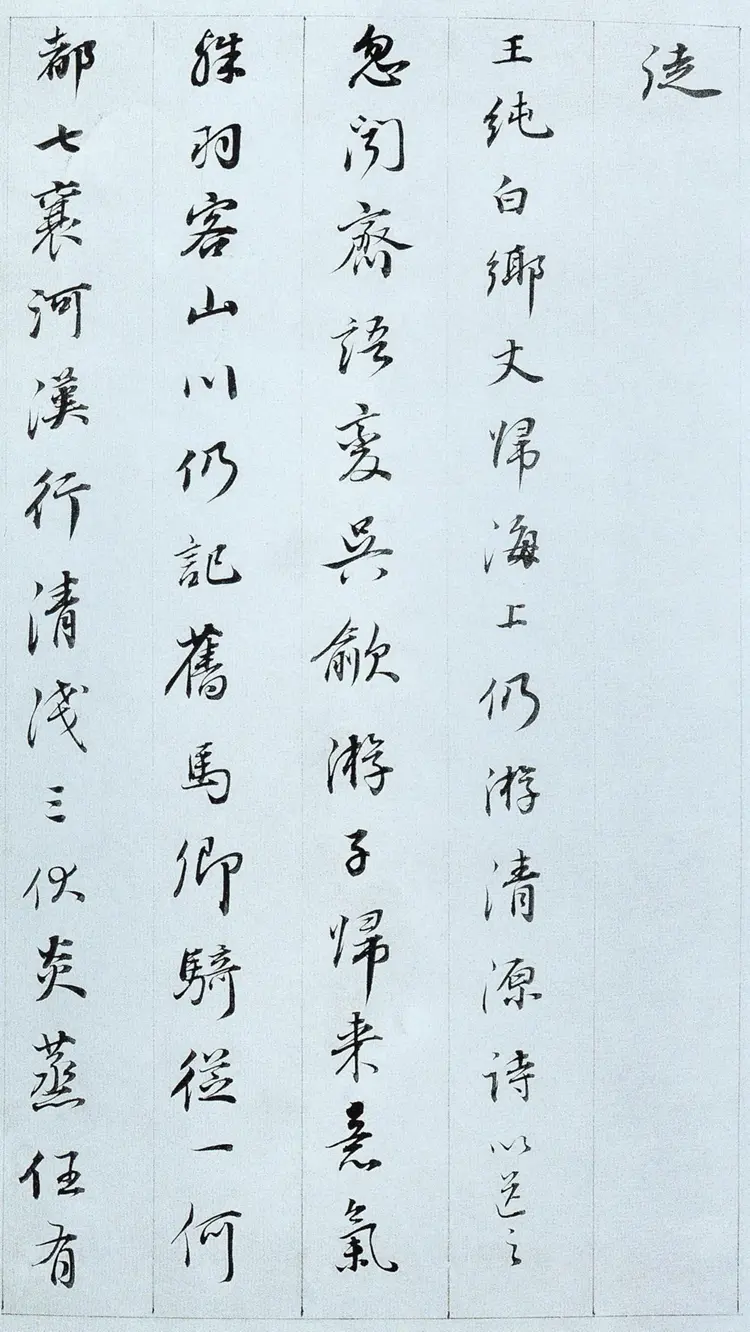 徒
王純白鄉丈歸海上仍游清源詩以送之
忽闻齋語變吳歈游子歸来意氣
殊羽客山川仍記舊馬卿騎從一何
都七襄河漢行清淺三伏炎蒸任有